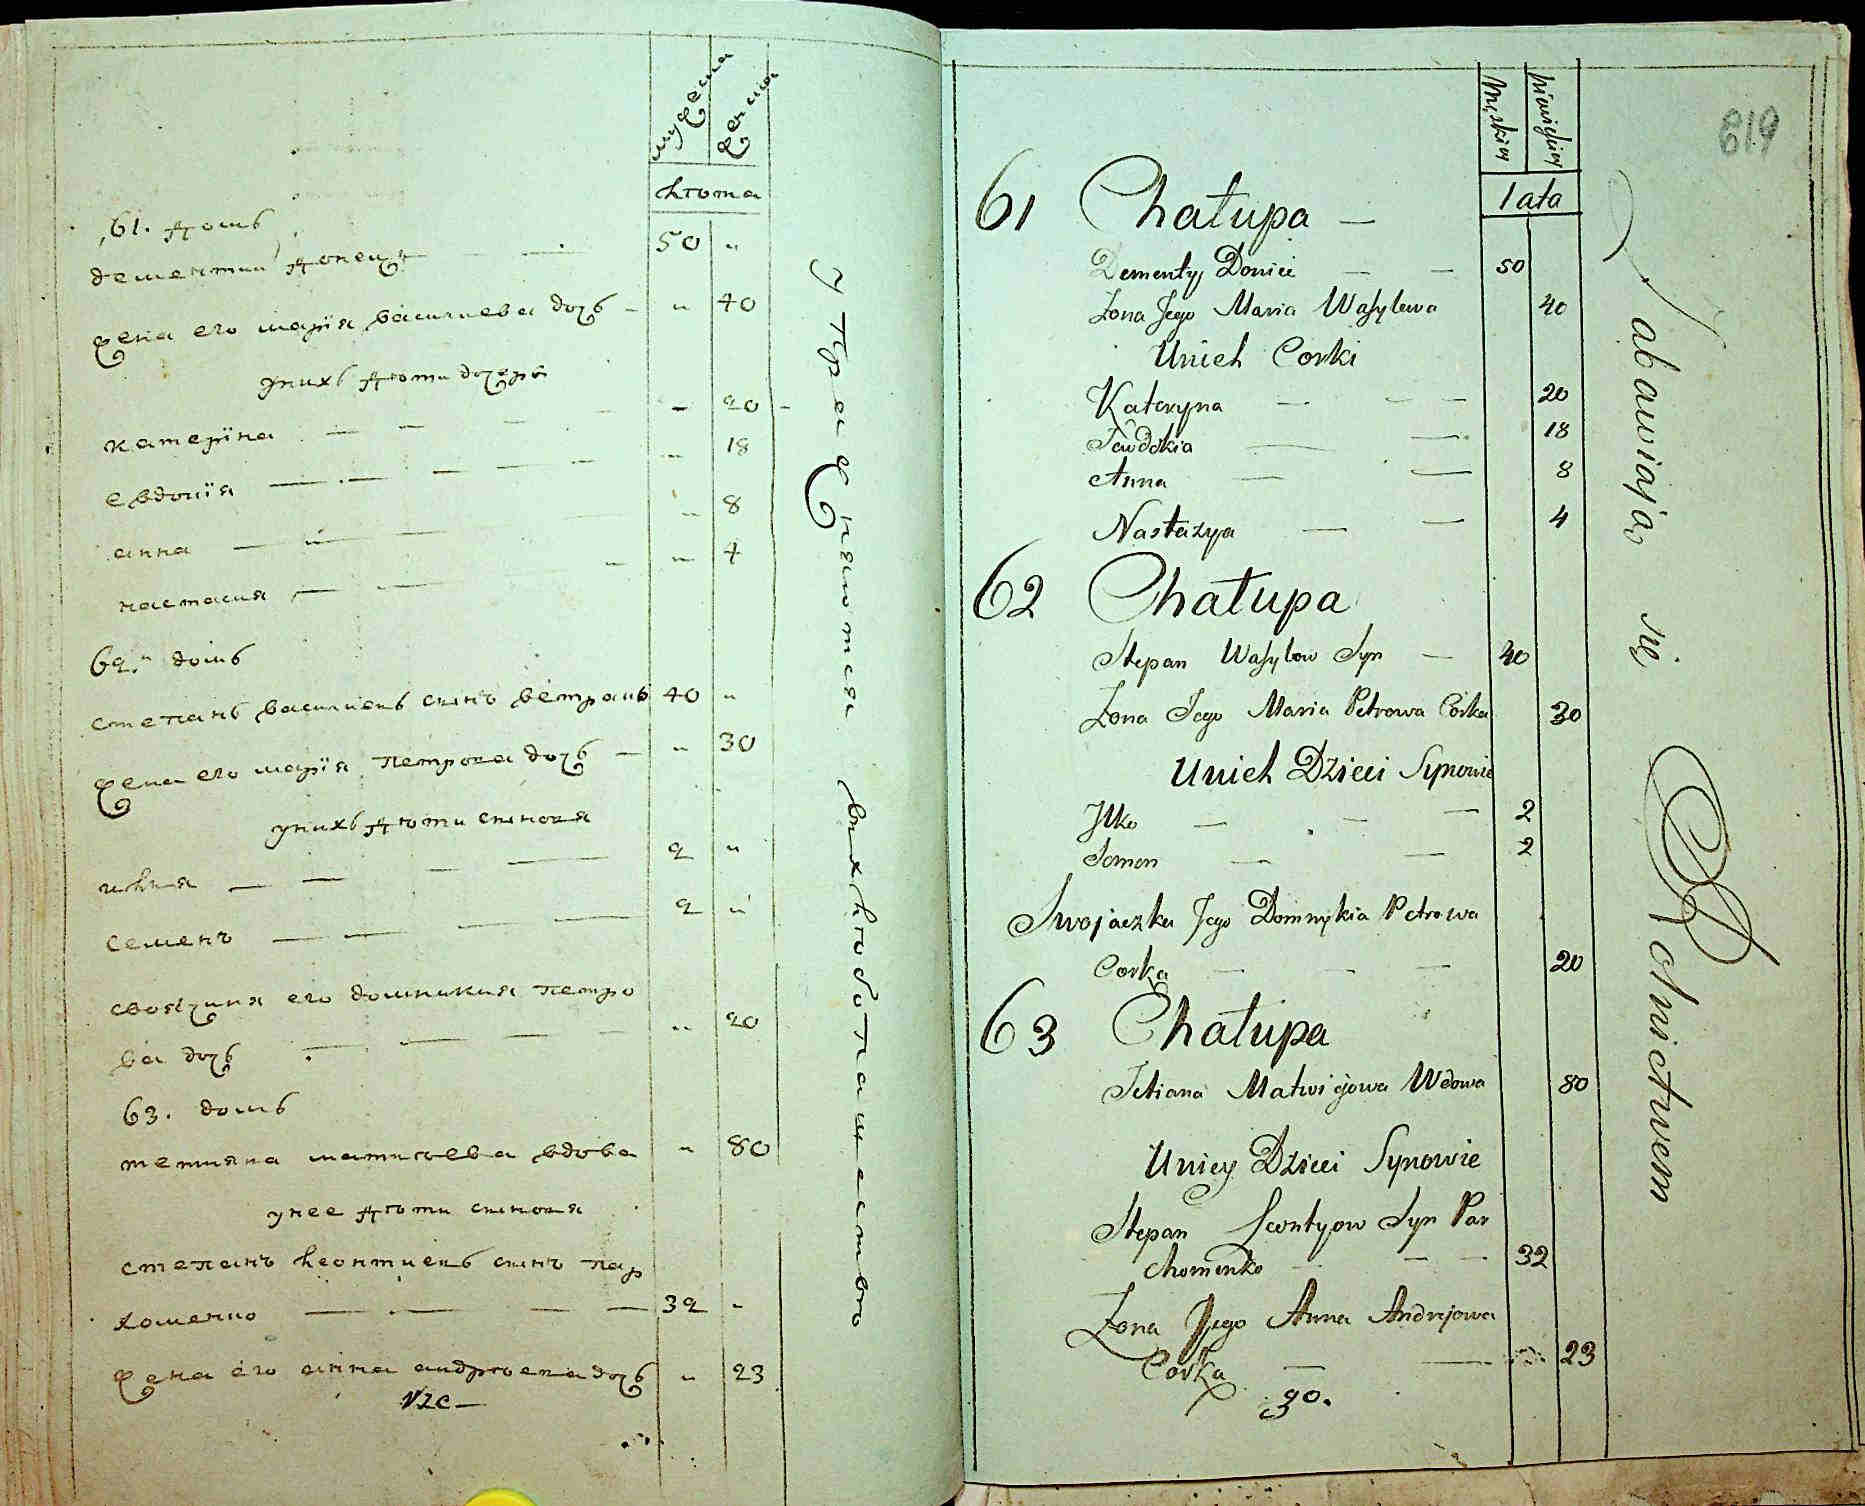 мужеска
женска
лѣта
61. домъ
дементий донецъ — — 50 "
жена его марїя василиева дочь — " 40
у нихъ дѣти дочери
катерїна — — — " 20 -
евдокїя — — — — " 18
анна — — — " 8
настасия — — — " 4
62. домъ
степанъ василиевъ синъ 40 "
жена его марїя петрова дочь — " 30
у нихъ дѣти синовя
илкя — — — — 2 "
семенъ — — — — 2 "
своячиня его домникия петро
ва дочь — — — " 20
63. домъ
тетияна матиѣева вдова " 80
у нее дѣти синовя
степанъ леонтиевъ синъ пар
хоменко — — — — 32 "
жена его анна андрѣева дочь " 23
упражняются вихлѣбопашество
819
Męskiey
Niewieskiey
lata
61 Chałupa —
Dementy Doniec — — 50
Żona Jego Maria Wasylewa 40
Unich Corki
Kateryna — — — 20
Jewdokia — — 18
Anna — — 8
Nastazya — — 4
62 Chałupa
Stepan Wasylow Syn — 40
Żona Jego Maria Petrowa Córka 30
Unich Dzieci Synowie
Jlko — — — 2
Semen — — 2
Swojaczka Jego Domnykia Petrowa
Corka — — — 20
63 Chałupa
Tetiana Matwijowa Wdowa 80
Uniey Dzieci Synowie
Stepan Leontyow Syn Par
chomenko — — — 32
Żona Jego Anna Andrejowa
Corka — — 23
Zabawiają się Rolnictwem